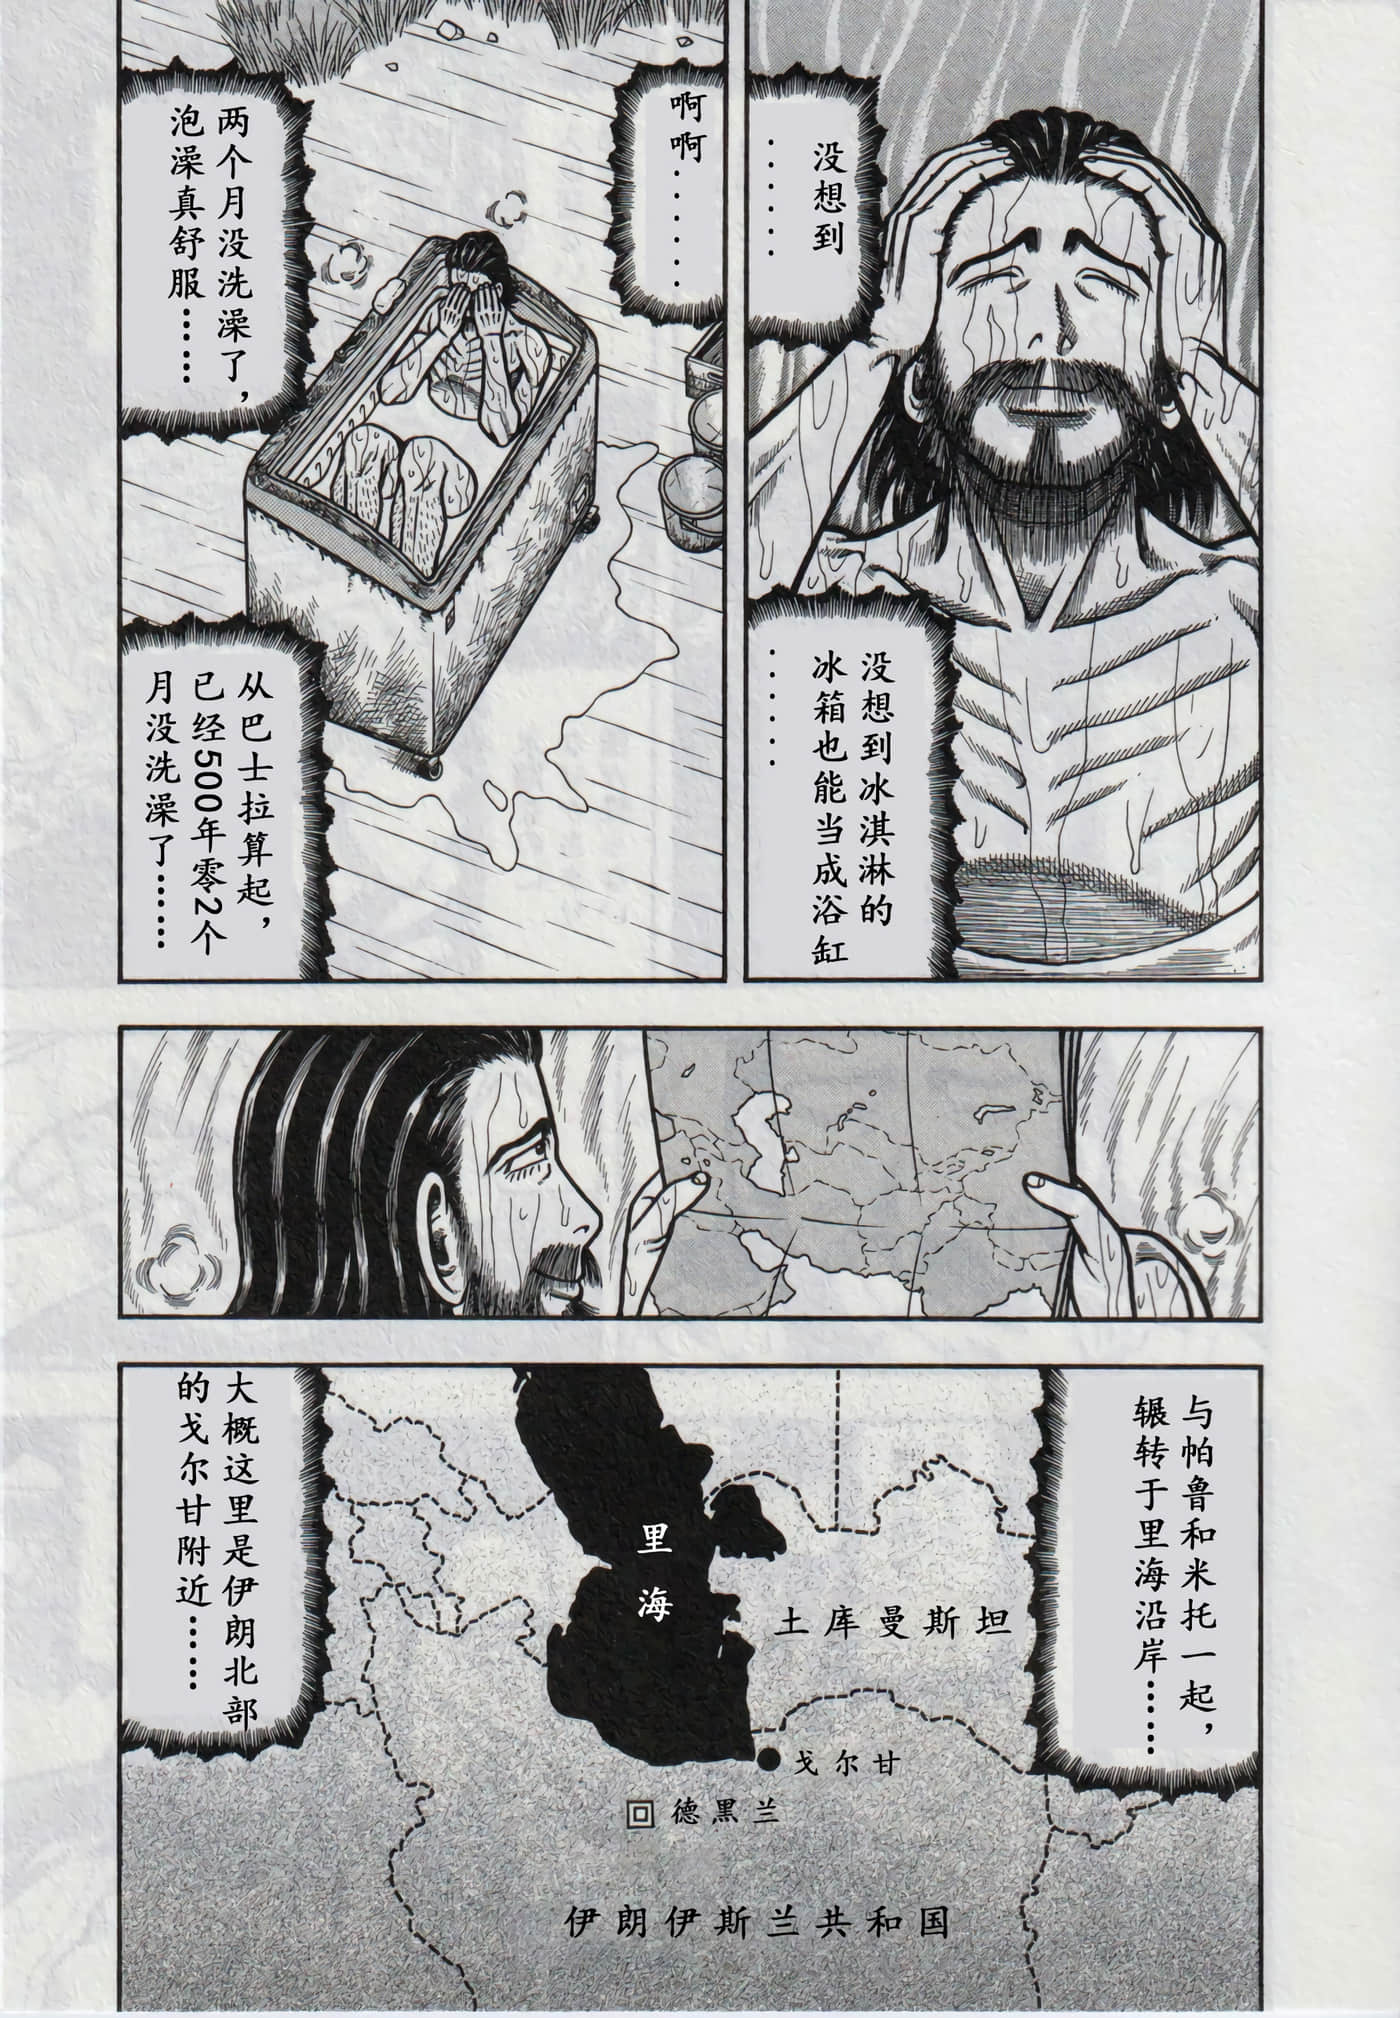 没想到
………
没想到冰淇淋的
冰箱也能当成浴缸
………
啊啊………
两个月没洗澡了，
泡澡真舒服……
从巴士拉算起，
已经500年零2个
月没洗澡了……
与帕鲁和米托一起，
辗转于里海沿岸……
里海
土库曼斯坦
戈尔甘
德黑兰
伊朗伊斯兰共和国
大概这里是伊朗北部
的戈尔甘附近……